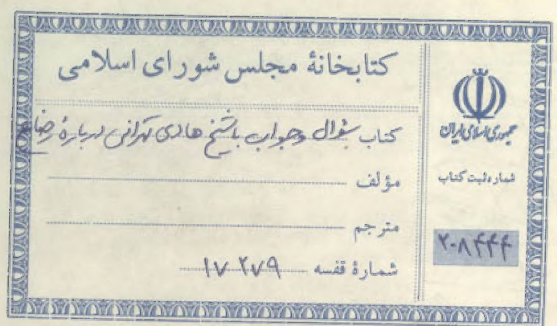 کتابخانهٔ مجلس شورای اسلامی
کتاب سئوال وجواب باشیخ هادی تهرانی دربارهٔ رضاع
مؤلف
مترجم
شمارهٔ قفسه ۱۷۲۷۹
جمهوری اسلامی ایران
شماره ثبت کتاب
۲۰۸۴۴۴